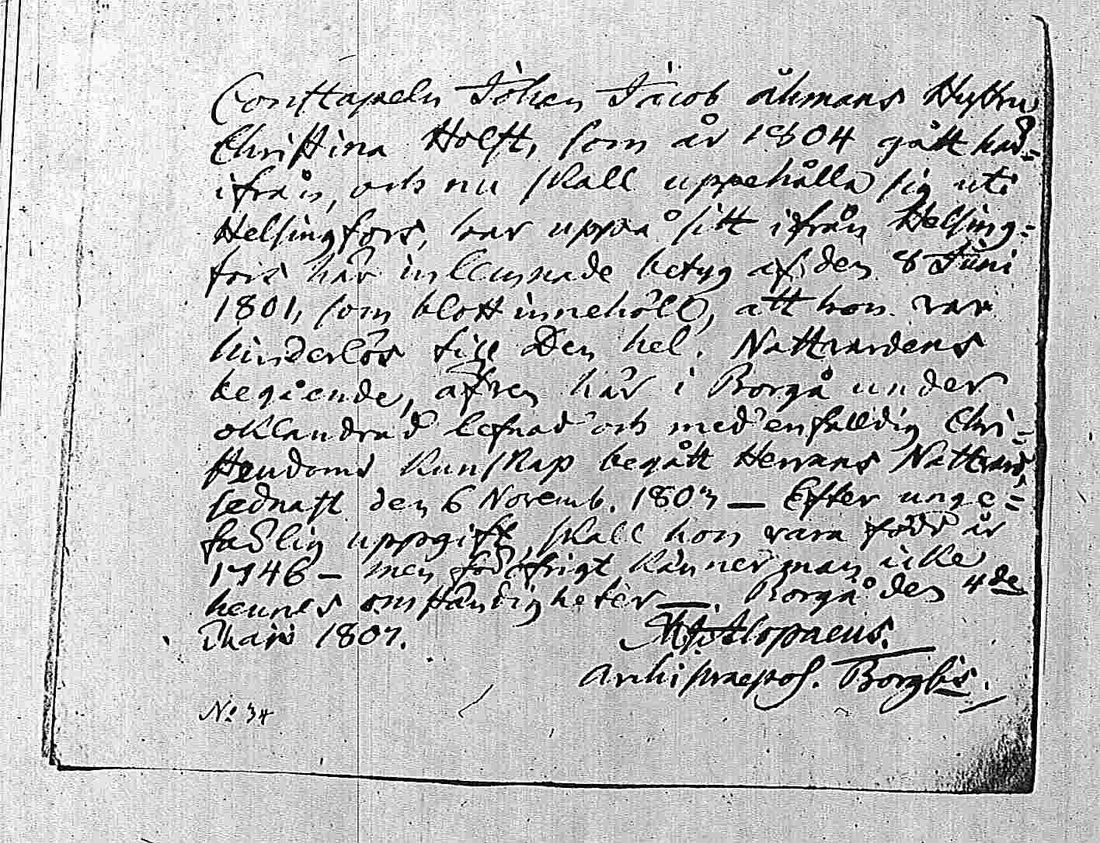 Constapeln Johan Jacob Åhmans Hustru
Christina Holst, som år 1804 gått här=
ifrån, och nu skall uppehålla sig uti
Helsingfors, har uppå sitt ifrån Helsing=
fors här inlemnade betyg af den 8 Juni
1801, som blott innehöll, att hon var
hinderlös till Den hel. Nattvardens
begående, äfven här i Borgå under
oklandrad lefnad och med enfalldig Chri=
stendoms kunskap begått Herrans Nattvard
sednast den 6 Novemb. 1803 — Efter unge=
färlig uppgift, skall hon vara född år
1746 — men för öfrigt känner man icke
hennes omständigheter — Borgå den 4de
Maji 1807.
Alopaeus.
Archipraepos. Borg:s.
No 34